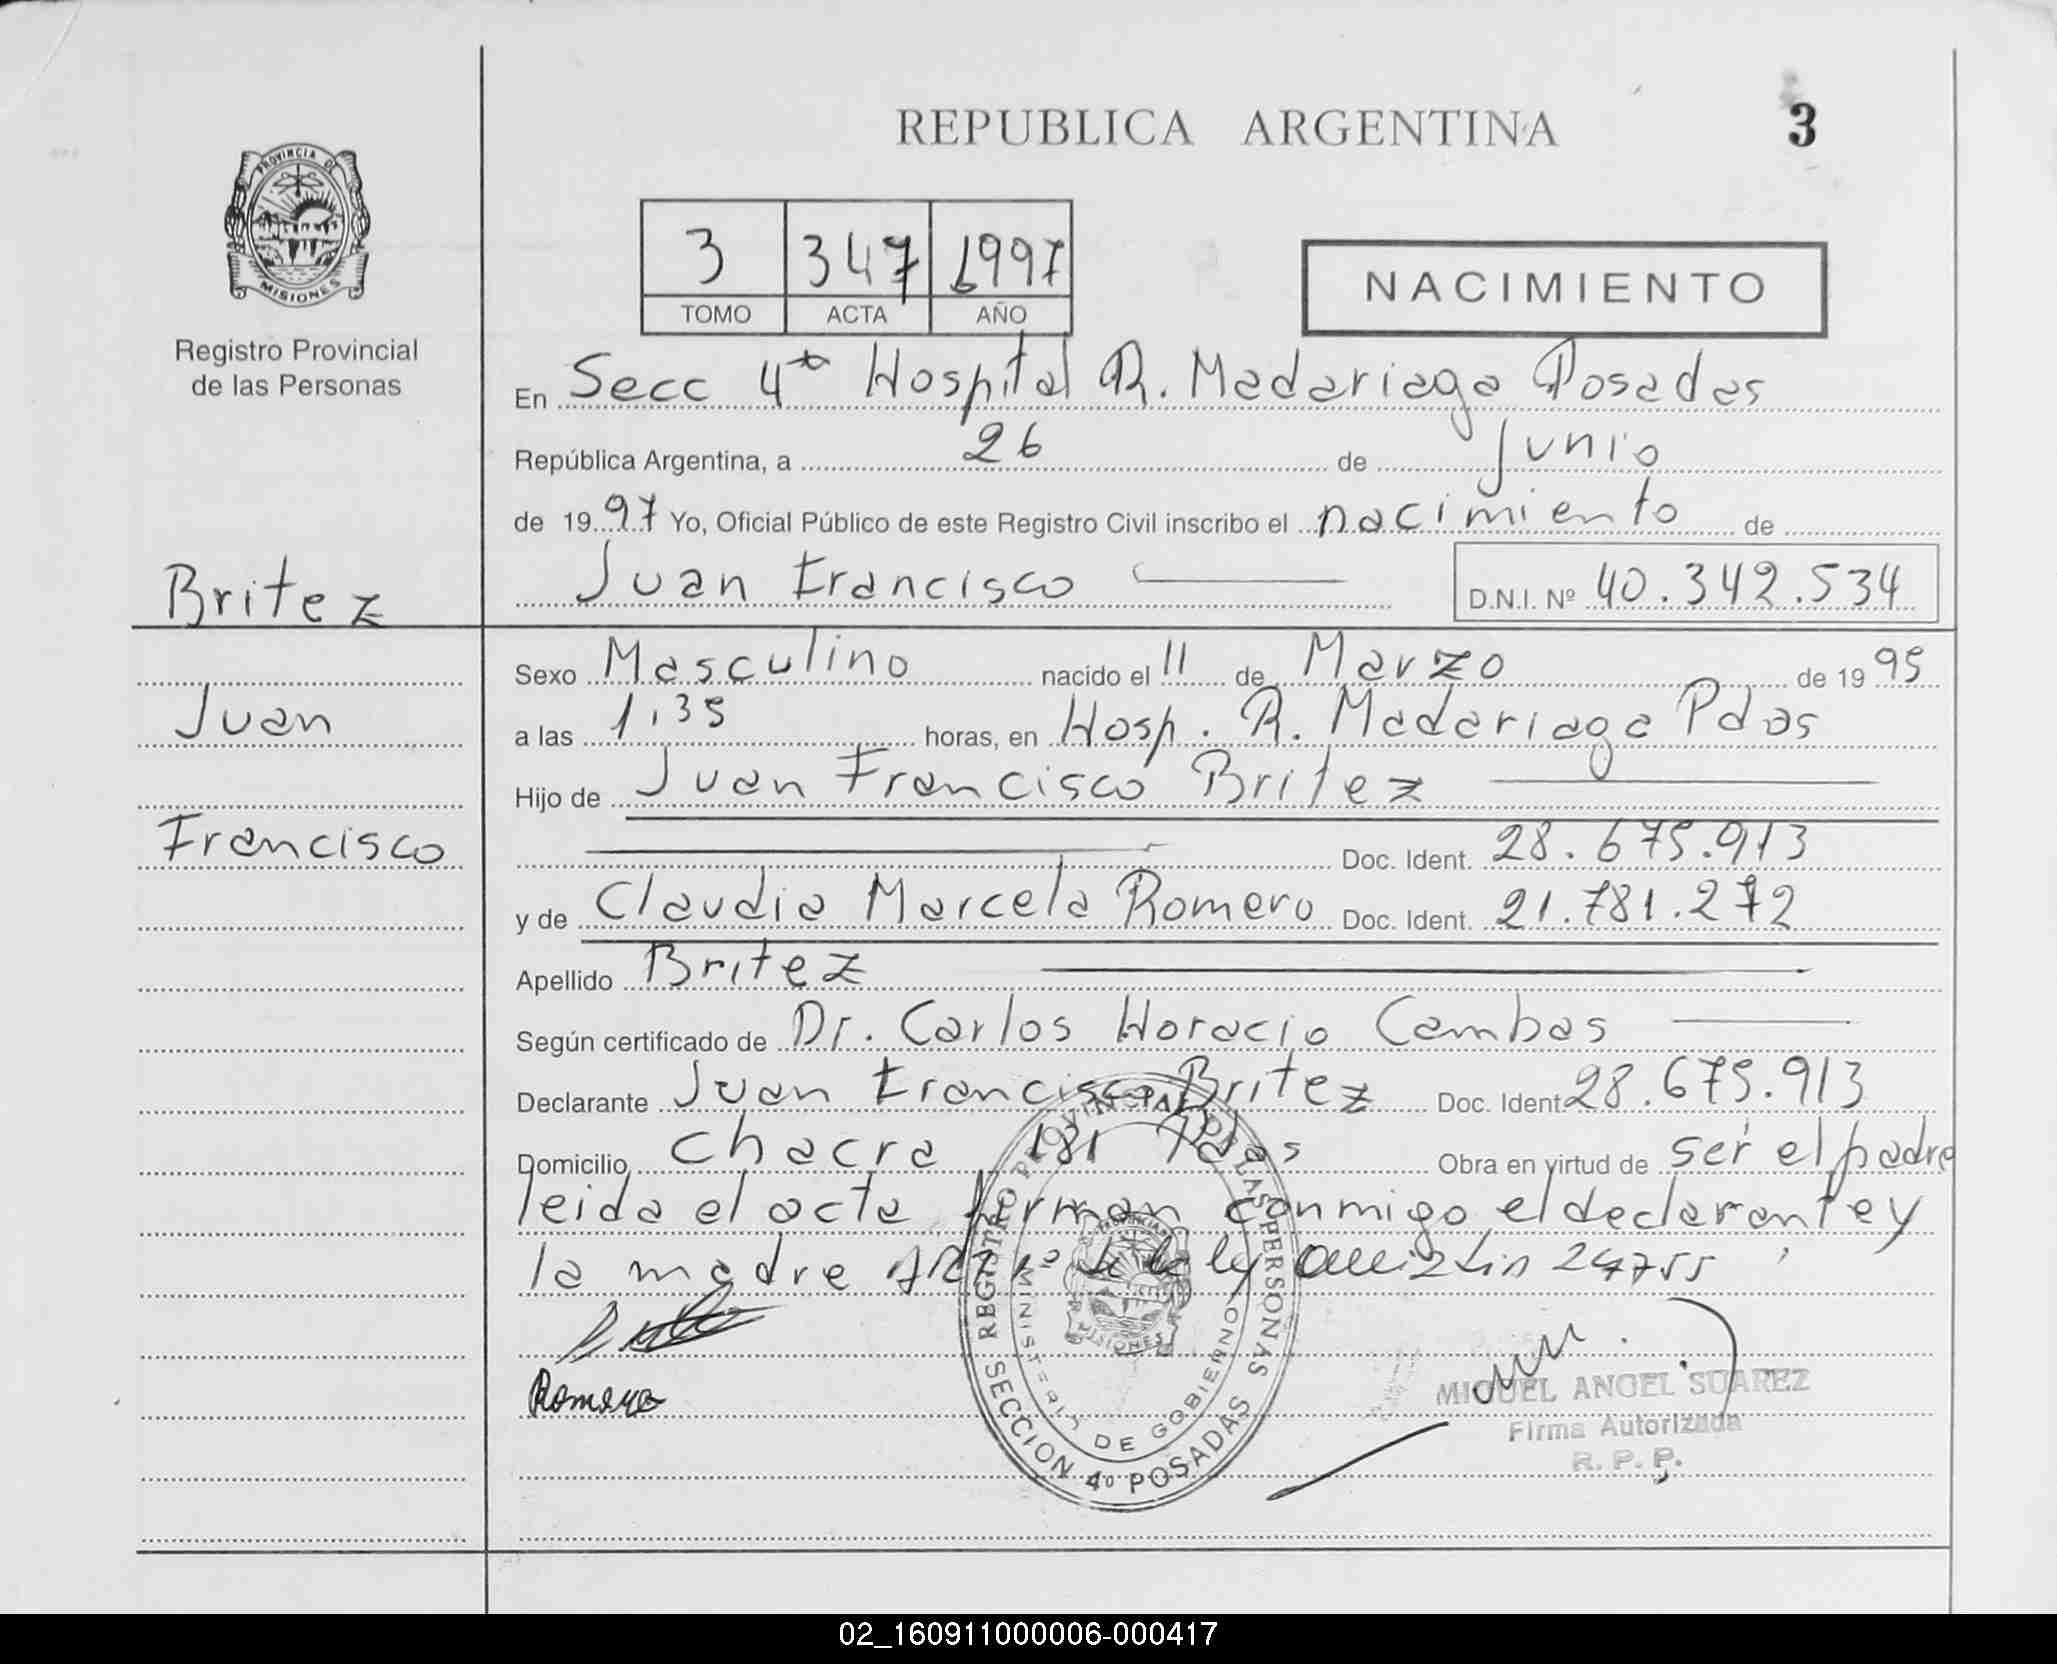 REPUBLICA ARGENTINA
3
PROVINCIA DE
MISIONES
Registro Provincial
de las Personas
3 347 1997
TOMO ACTA AÑO
NACIMIENTO
En Secc 4ta Hospital R. Madariaga Posadas
República Argentina, a 26 de Junio
de 1997 Yo, Oficial Público de este Registro Civil inscribo el nacimiento de
Britez
Juan Francisco D.N.I. Nº 40.342.534
Sexo Masculino nacido el 11 de Marzo de 1995
Juan
a las 1,35 horas, en Hosp. R. Madariaga Pdas
Hijo de Juan Francisco Britez
Francisco
Doc. Ident. 28.675.913
y de Claudia Marcela Romero Doc. Ident. 21.781.272
Apellido Britez
Según certificado de Dr. Carlos Horacio Cambas
Declarante Juan Francisco Britez Doc. Ident 28.675.913
Domicilio Chacra 181 Pdas Obra en virtud de ser el padre
leida el acta firman conmigo el declarante y
la madre 24755
Romero
REGISTRO PROVINCIAL DE LAS PERSONAS
MINISTERIO DE GOBIERNO
SECCION 4º POSADAS
MIGUEL ANGEL SUAREZ
Firma Autorizada
R. P. P.
02_160911000006-000417